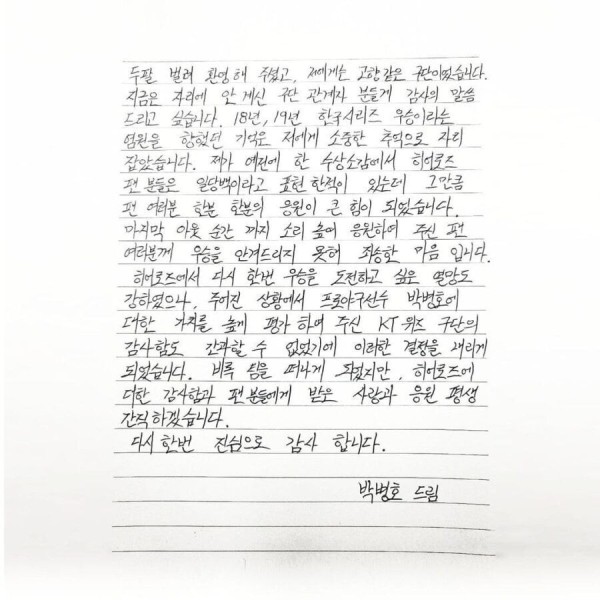 두팔 벌려 환영해 주셨고, 저에게는 고향같은 구단이었습니다.
지금은 자리에 안 계신 구단 관계자 분들께 감사의 말씀
드리고 싶습니다. 18년, 19년 한국시리즈 우승이라는
염원을 향했던 기억은 저에게 소중한 추억으로 자리
잡았습니다. 제가 예전에 한 수상소감에서 히어로즈
팬 분들은 일당백이라고 표현 한적이 있는데 그만큼
팬 여러분 한분 한분의 응원이 큰 힘이 되었습니다.
마지막 아웃 순간 까지 소리 높여 응원하여 주신 팬
여러분께 우승을 안겨드리지 못해 죄송한 마음 입니다.
히어로즈에서 다시 한번 우승을 도전하고 싶은 열망도
강하였으나, 주어진 상황에서 프로야구선수 박병호에
대한 가치를 높게 평가 하여 주신 KT 위즈 구단의
감사함도 간과할 수 없었기에 이러한 결정을 내리게
되었습니다. 비록 팀을 떠나게 되었지만, 히어로즈에
대한 감사함과 팬 분들에게 받은 사랑과 응원 평생
간직하겠습니다.
다시 한번 진심으로 감사 합니다.
박병호 드림